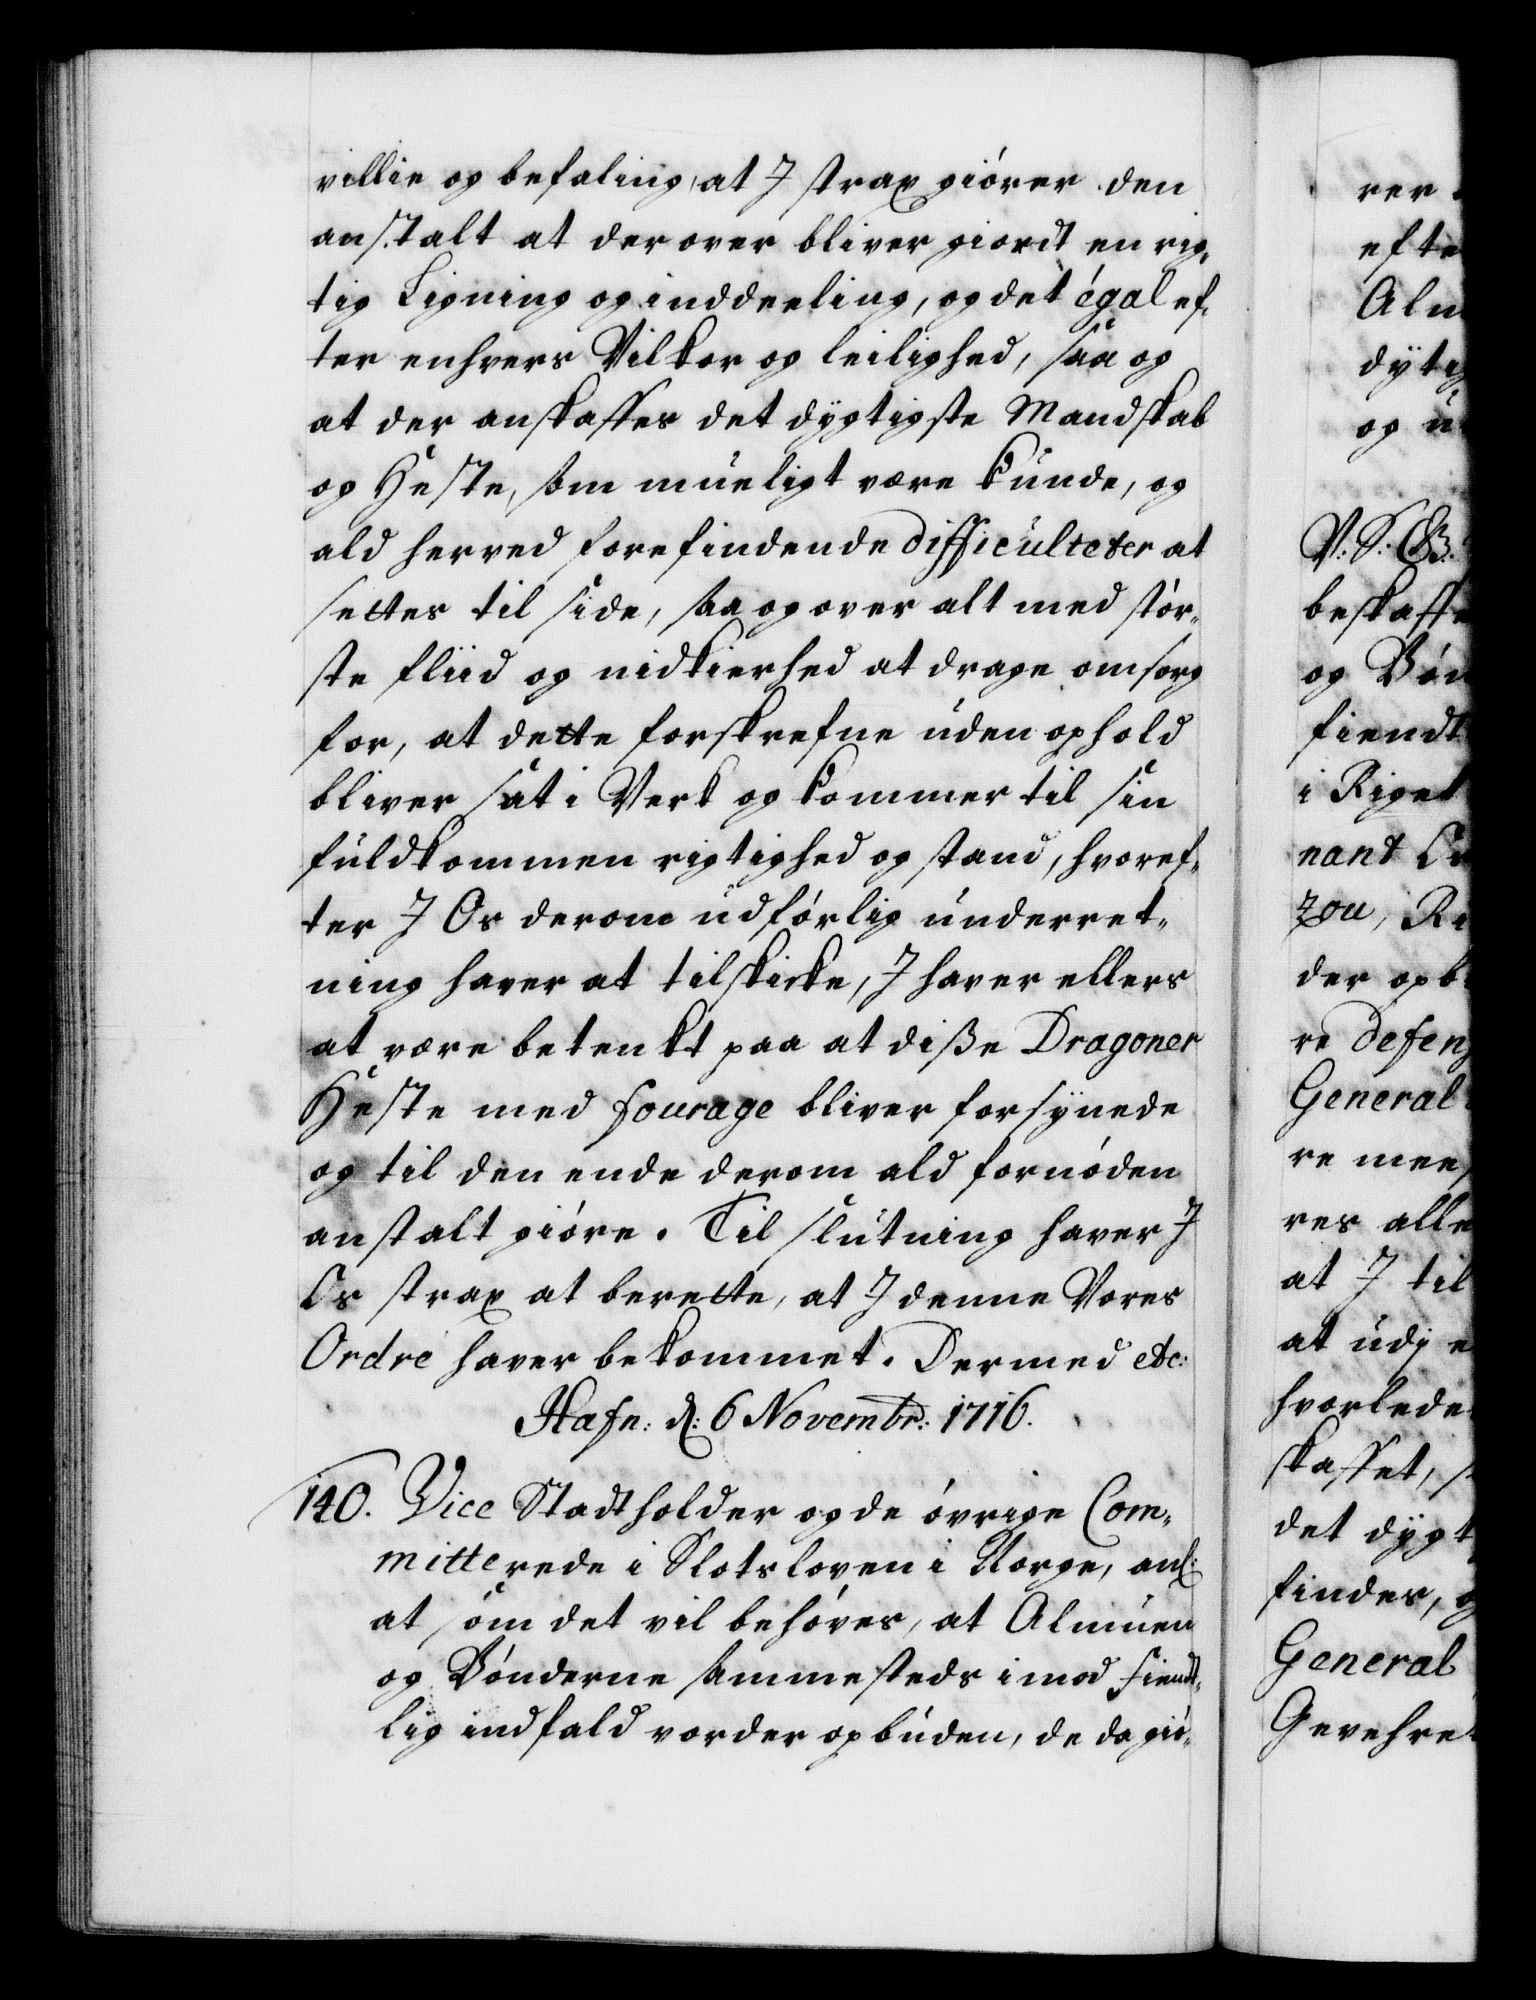 villie og befaling, at J strax giörer den
anstalt at derover bliver giordt en rig,
tig Ligning og inddeeling, og det égal ef,
ter enhvers Vilkor og leilighed, saa og
at der anskaffes det dygtigste Mandskab
og Heste, som mueligt være kunde, og
ald herved forefindende difficulteter at
settes til side, saa og over alt med stör,,
ste fliid og nidkierhed at drage omsorg
for, at dette forskrefne uden ophold
bliver sat i Verk og kommer til sin
fuldkommen rigtighed og stand, hvoref,
ter J Os derom udförlig underret,,
ning haver at tilskicke, J haver ellers
at være betenkt paa at diße Dragoner
Heste med fourage bliver forsÿnede
og til den ende derom ald fornöden
anstalt giöre. Til slutning haver J
Os strax at berette, at J denne Vores
Ordre haver bekommet. Dermed etc:
Hafn: d: 6 Novembr: 1716.
140. Vice Stadtholder og de övrige Com,,
mitterede i Slotsloven i Norge, anl:
at som det vil behöves, at Almuen
og Bönderne sammesteds imod fiendt,,
lig indfald vorder opbuden, de da giö,,
rer
efte
Alm
dÿtig
og u
V: S: G:
beskaffe
og Bön
fiendt
i Riget
nant
zou, Ri
der opb
re defens
General
re mee
res alle
at J til
at udj e
hvorlede
skaffet, s
det dÿgt
findes, o
General
Gevehre